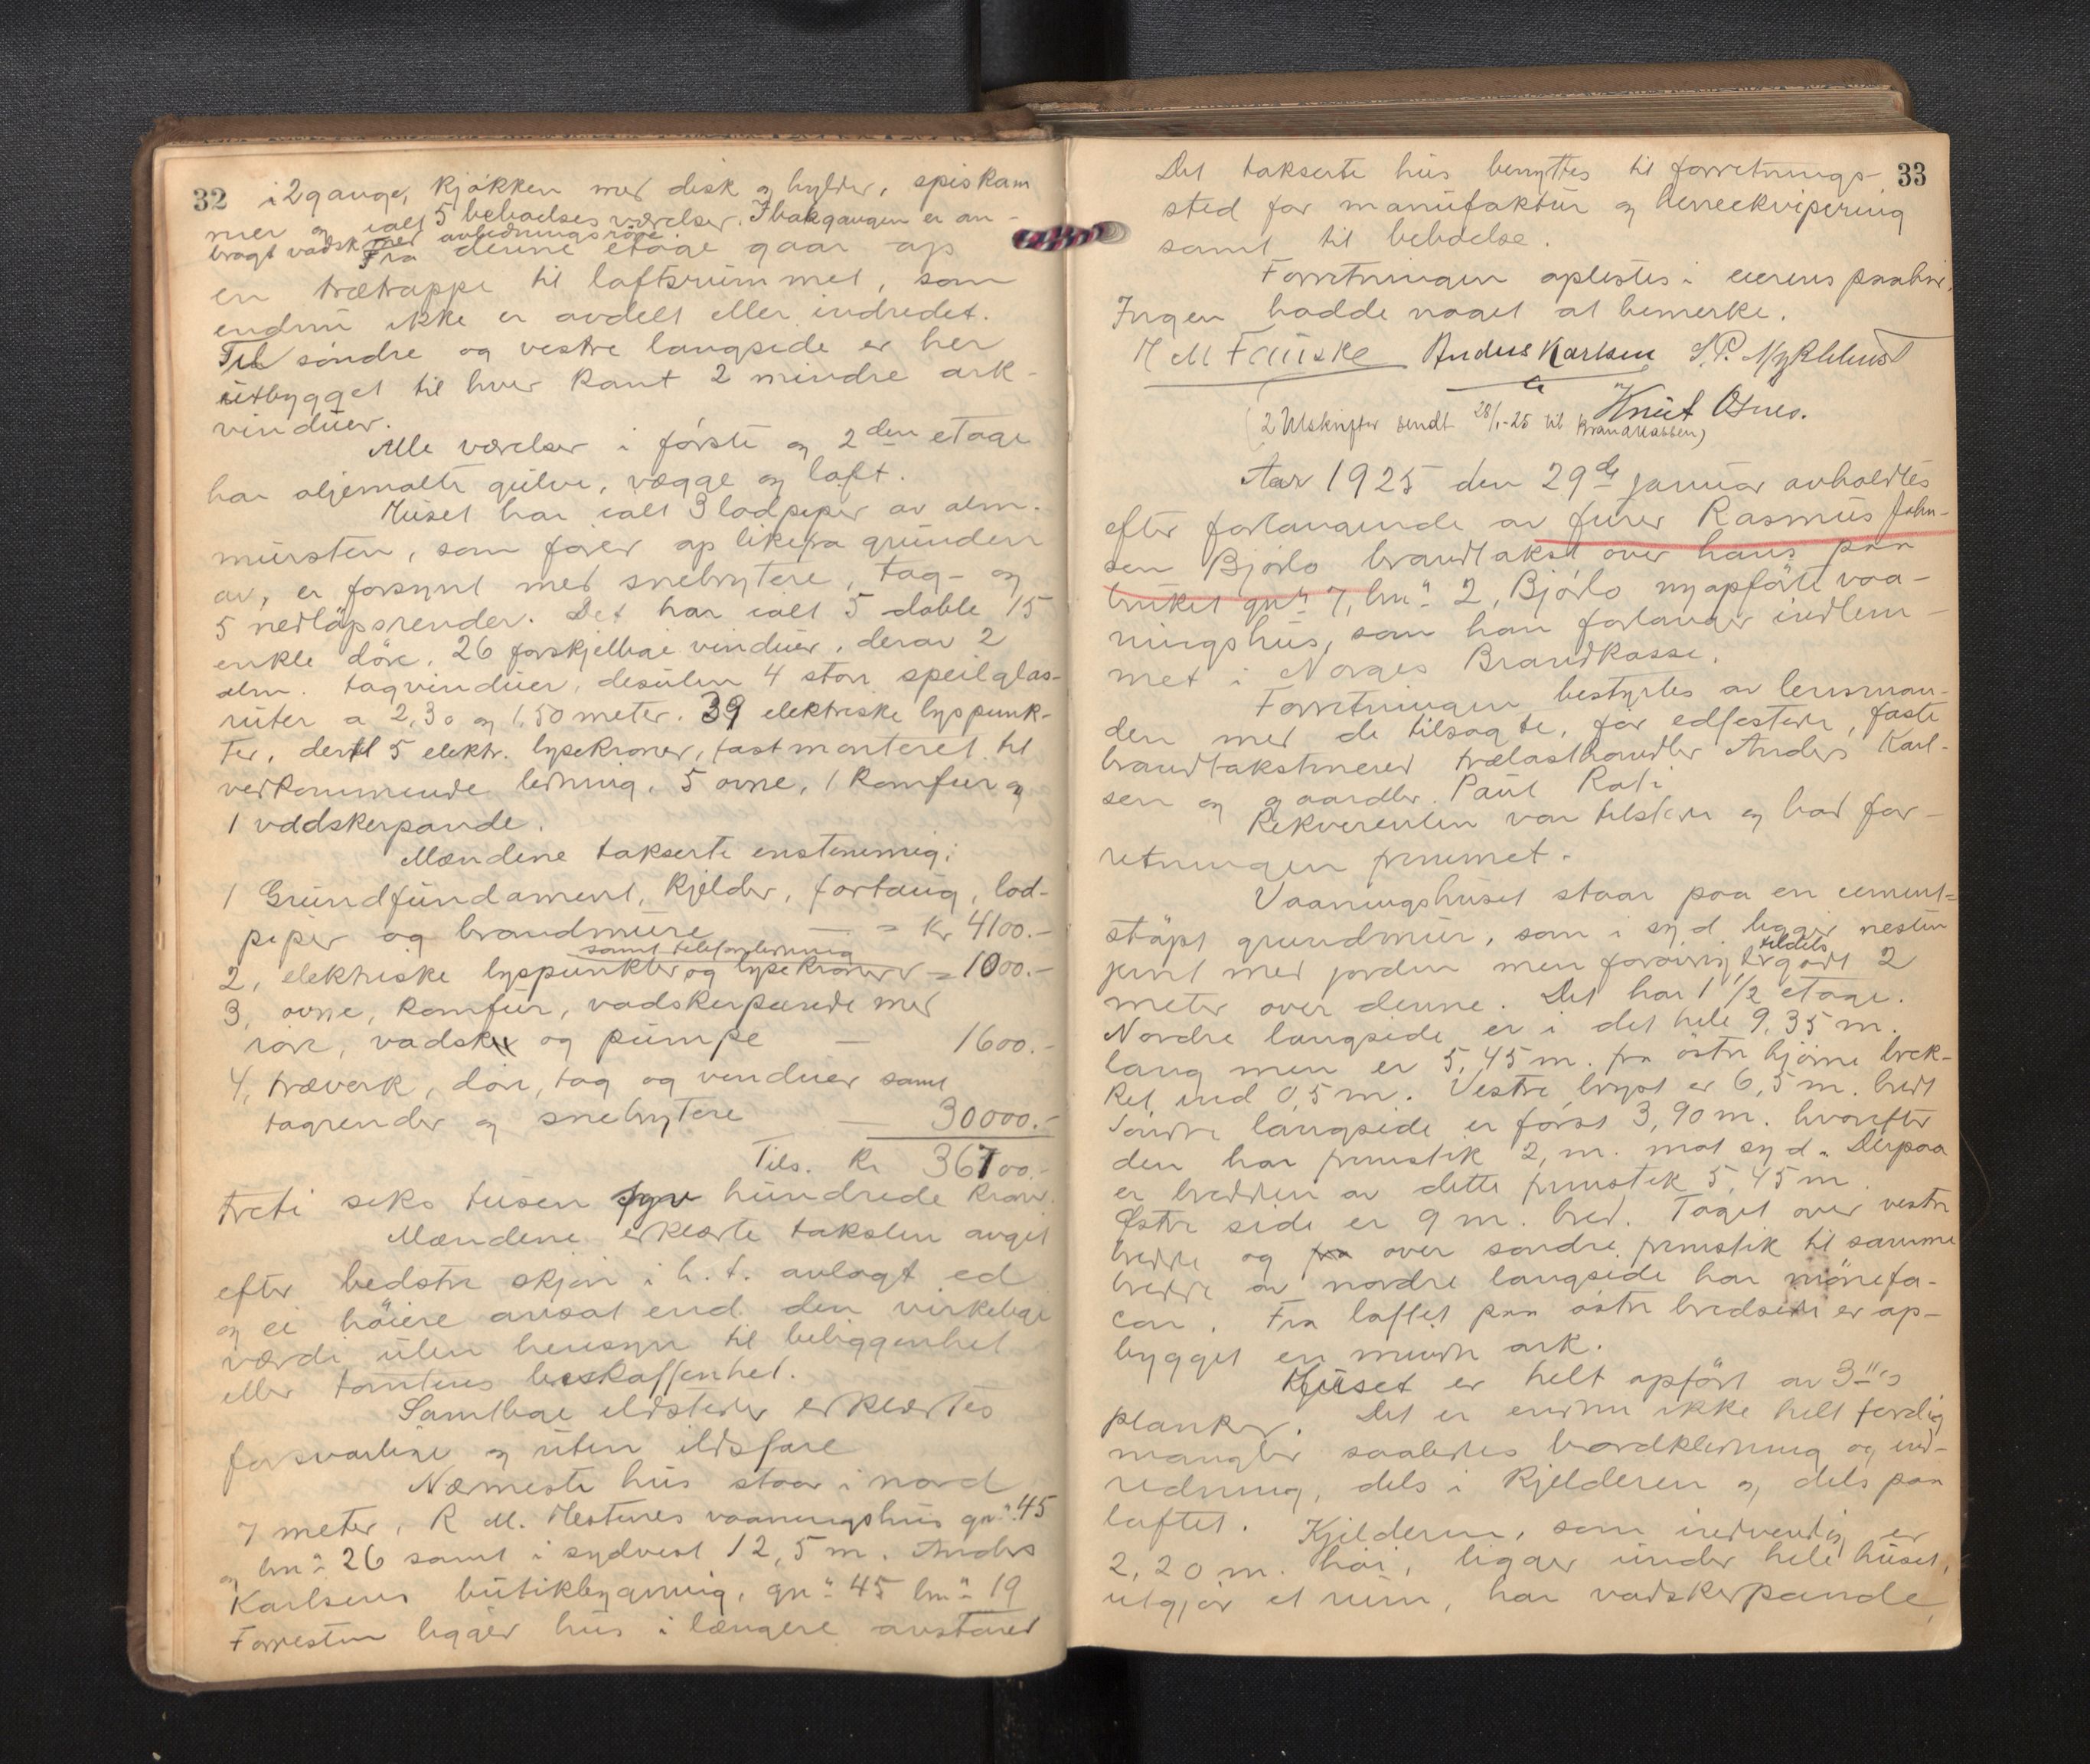 32
i 2 gange, kjøkken med disk og hylder, spiskam
mer og ialt 5 beboelsesværelser. I bakgangen er an-
bragt vadsk med avledningsrøre.
Fra denne etage gaar op
en trætrappe til loftsrummet, som
endnu ikke er avdelt eller indredet.
Til søndre og vestre langside er her
utbygget til hver kant 2 mindre ark-
vinduer.
Alle værelser i første og 2den etage
har oljemalte gulve, vægge og loft.
Huset har ialt 3 lodpiper av alm.
mursten, som fører op likefra grunden
av, er forsynt med snebrytere, tag- og
5 nedløpsrender. Det har ialt 5 doble 15
enkle døre, 26 forskjellige vinduer, derav 2
alm. tagvinduer, desuten 4 store speilglas-
ruter a 2,30 og 1,50 meter. 39 elektriske lyspunk-
ter, dertil 5 elektr. lysekroner, fastmonteret til
vedkommende ledning, 5 ovne, 1 komfur og
1 vaddskerpande.
Mændene takserte enstemmig:
1 Grundfundament, kjelder, fortaug, lod-
piper og brandmure — = Kr 4100.-
samt telefonledning
2, elektriske lyspunkter og lysekroner = 1000.-
3, ovne, komfur, vadskerpande med
rør, vadsk og pumpe — 1600.-
4, træverk, døre, tag og vinduer samt
tagrender og snebrytere — 30000.-
Tils. Kr 36700.-
treti seks tusen syv hundrede kroner.
Mændene erklærte taksten avgit
efter bedste skjøn i h. t. avlagt ed
og ei høiere ansat end den virkelige
værdi uten hensyn til beliggenhet
eller tomtens beskaffenhet.
Samtlige ildsteder erklærtes
forsvarlige og uten ildsfare
Nærmeste hus staar i nord
7 meter, R. M. Hestnes vaaningshus gn" 45
og bn" 26 samt i sydvest 12,5 m. Anders
Karlsens butikbygning, gn" 45 bn" 19
Forresten ligger hus i længere avstand
33
Det takserte hus benyttes til forretnings-
sted for manufaktur og herreekvipering
samt til beboelse.
Forretningen oplestes i eierens paahør.
Ingen hadde noget at bemerke.
H M Fauske Anders Karlsen S. P. Myklebust
Knut Osnes.
(2 Utskrifter sendt 28/1-25 til Brandkassen)
Aar 1925 den 29de januar avholdtes
efter forlangende av furer Rasmus John-
sen Bjørlo brandtakst over hans paa
bruket gn" 7, bn" 2, Bjørlo nyopførte vaa-
ningshus, som han forlanger indlem-
met i Norges Brandkasse.
Forretningen bestyrtes av lensman-
den med de tilsagte, før edfestede, faste
brandtakstmænd trælasthandler Anders Karl-
sen og gaardbr. Paul Roti
Rekvirenten var tilstede og bad for-
retningen fremmet.
Vaaningshuset staar paa en cement-
støpt grundmur, som i syd ligger nesten
jevnt med jorden men forøvrig tildels godt 2
meter over denne. Det har 1 1/2 etage.
Nordre langside er i det hele 9,35 m.
lang men er 5,45 m. fra østre hjørne bræk-
ket ind 0,5 m. Vestre bryst er 6,5 m. bredt
Søndre langside er først 3,90 m. hvorefter
den har fremstik 2, m. mot syd. Derpaa
er bredden av dette fremstik 5,45 m.
Østre side er 9 m. bred. Taget over vestre
bredde og over søndre fremstik til samme
bredde av nordre langside har mønefa-
con. Fra loftet paa østre bredside er op-
bygget en mindre ark.
Huset er helt opført av 3"s
planker. Det er endnu ikke helt ferdig
mangler saaledes bordklædning og ind-
redning, dels i kjelderen og dels paa
loftet. Kjelderen, som indvendig er
2,20 m. høi, ligger under hele huset,
utgjør et rum, har vadskerpande,